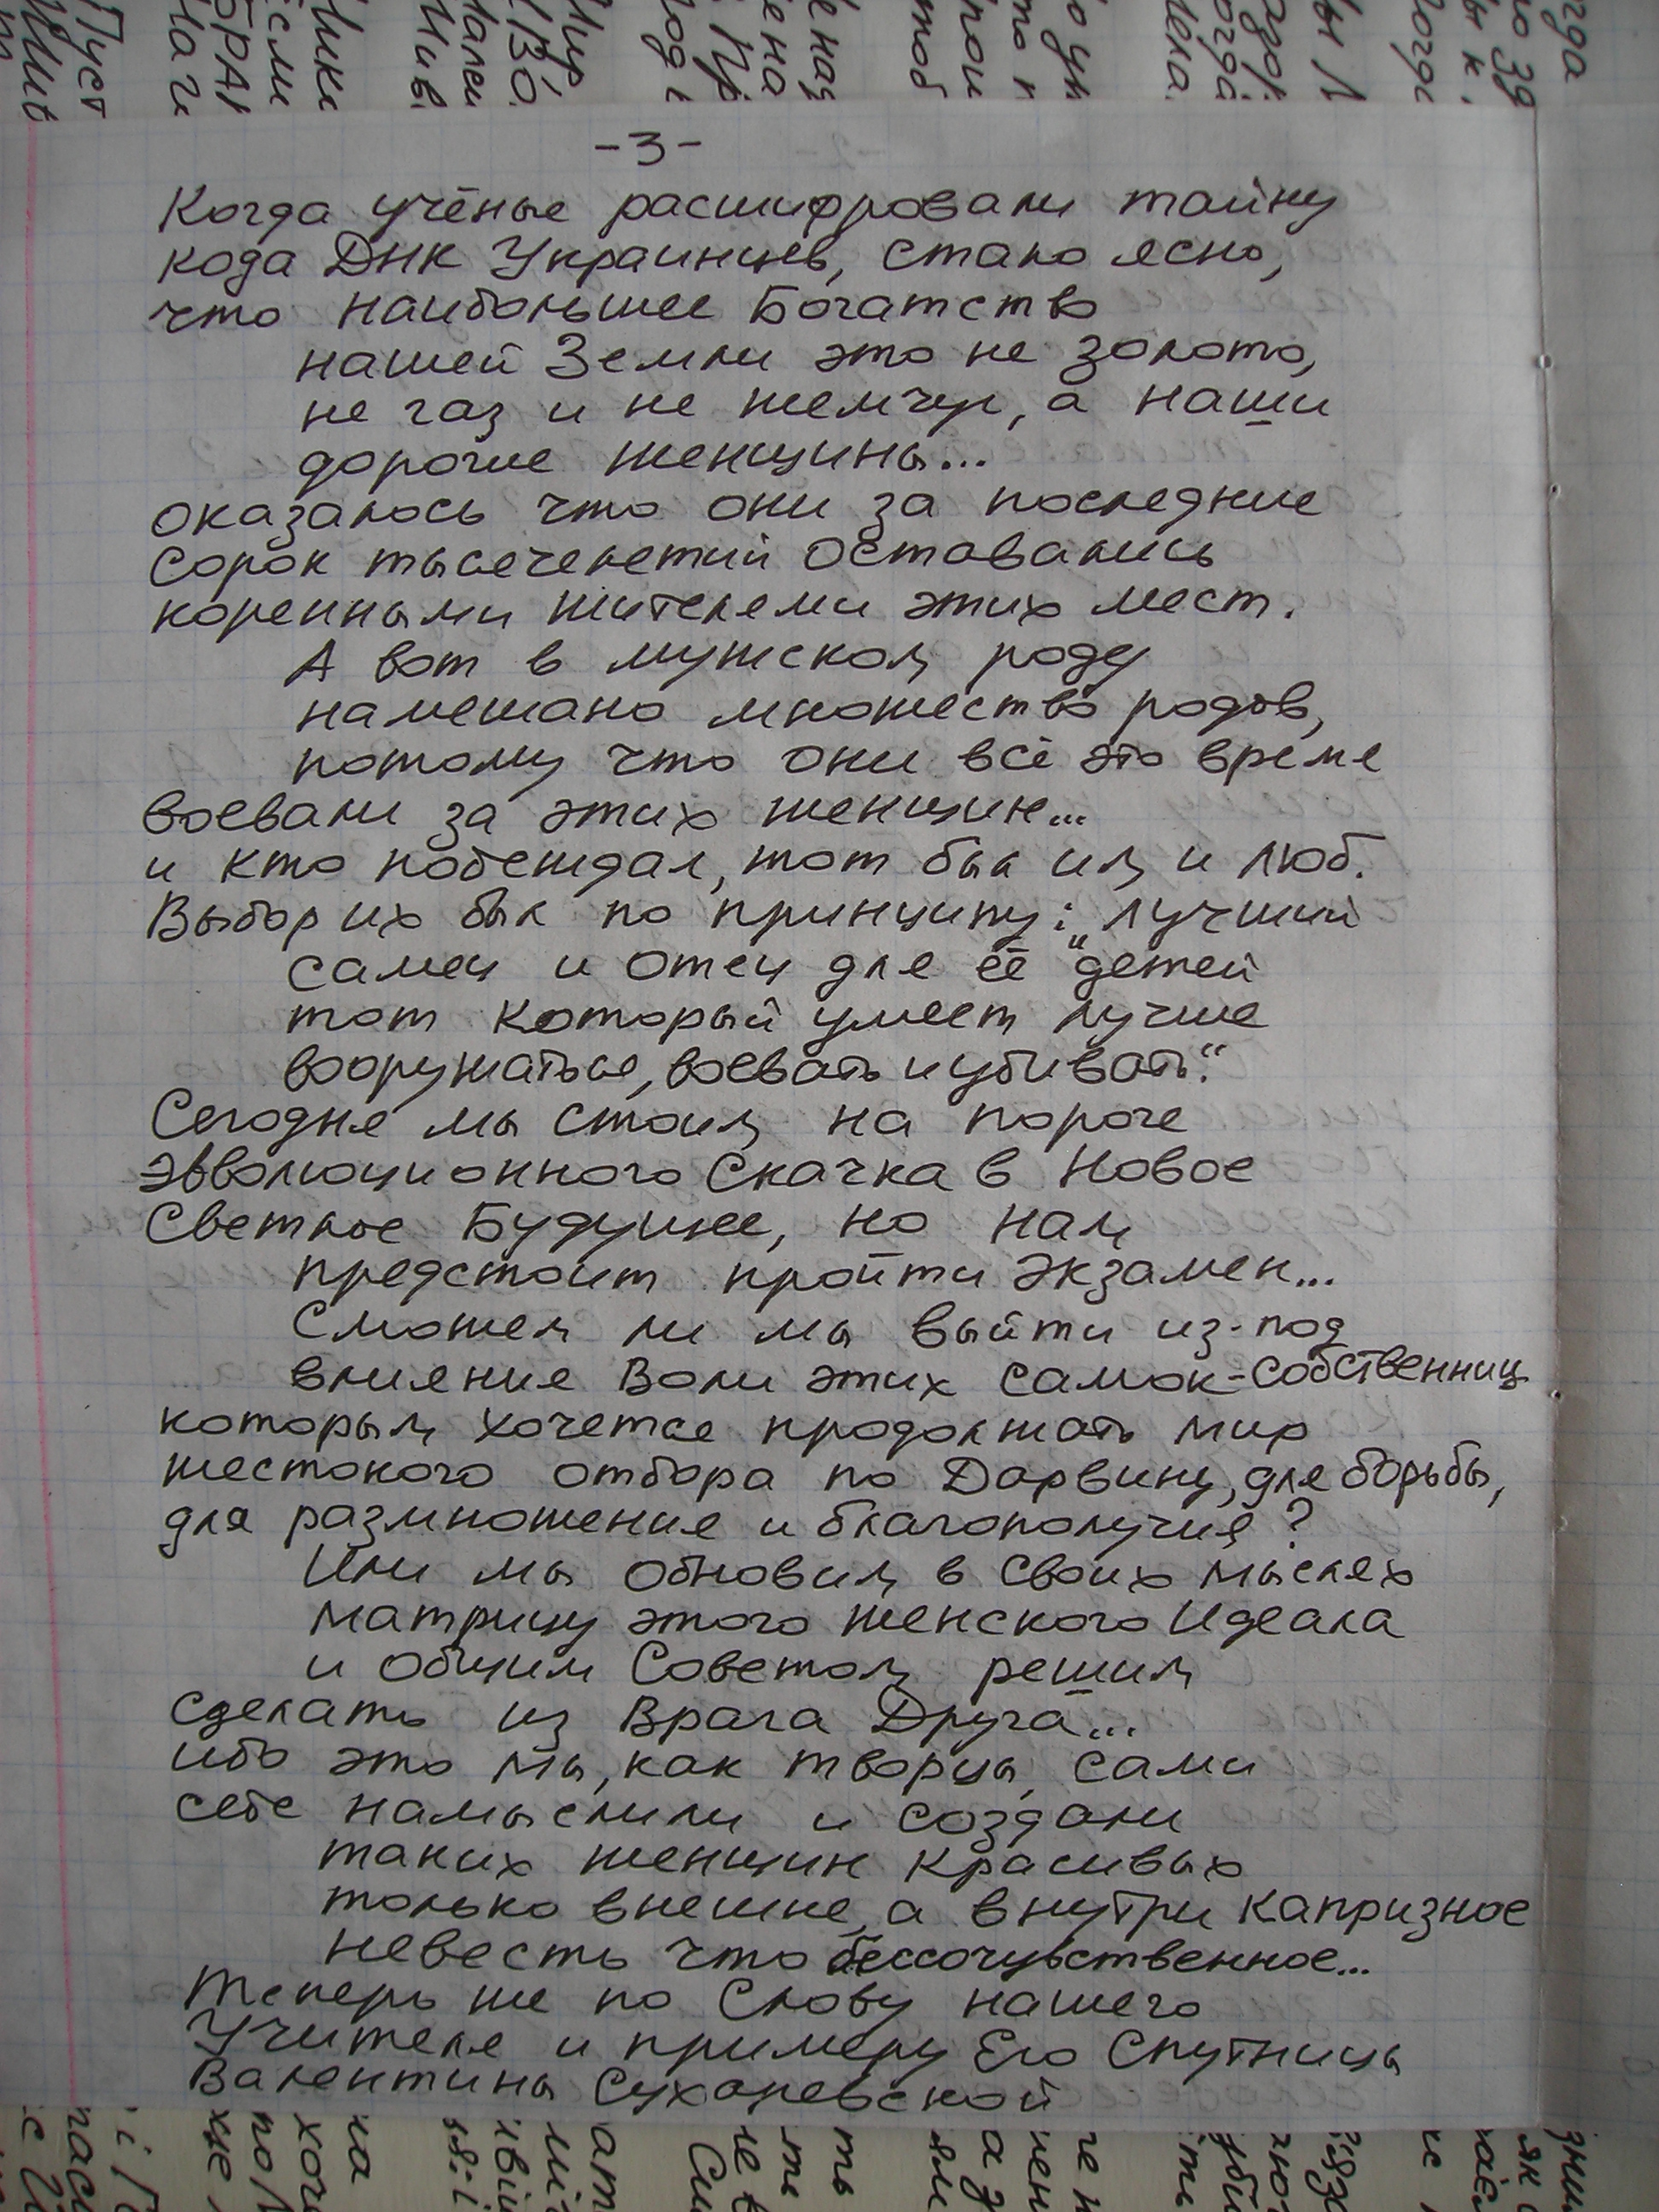 -3-
Когда учёные расшифровали тайну
кода ДНК Украинцев, стало ясно,
что наибольшее Богатство
нашей Земли это не золото,
не газ и не жемчуг, а наши
дорогие женщины...
оказалось что они за последние
сорок тысечелетий оставались
коренными жителеми этих мест.
А вот в мужском роду
намешано множество родов,
потому что они всё это време
воевали за этих женщин...
и кто побеждал, тот был им и люб.
Выбор их был по принципу: "лучший
самец и отец дле её детей
тот который умеет лучше
вооружатьсе, воевать и убивать".
Сегодне мы стоим на пороге
эвволюционного Скачка в Новое
Светлое Будущее, но нам
предстоит пройти экзамен...
Сможем ли мы выйти из-под
влиение Воли этих самок-собственниц
которым хочетсе продолжать мир
жестокого отбора по Дарвину, дле борьбы,
для размножение и благополучие?
Или мы обновим в своих мыслех
матрицу этого женского Идеала
и Общим Советом решим
сделать из Врага Друга...
ибо это мы, как творцы, сами
себе намыслили и создали
таких женщин красивых
только внешне, а внутри капризное
невесть что бессочувственное...
теперь же по Слову нашего
Учителе и примеру Его Спутницы
Валентины Сухаревской